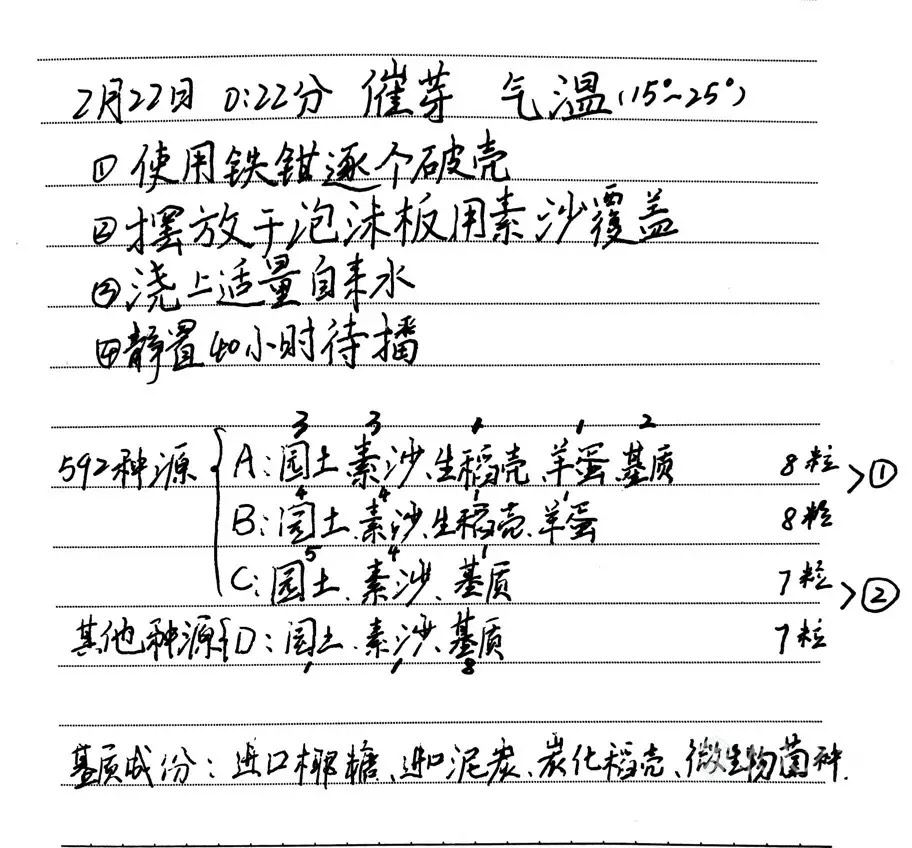 2月22日 0:22分 催芽 气温(15°~25°)
①使用铁钳逐个破壳
②摆放于泡沫板用素沙覆盖
③浇上适量自来水
④静置40小时待播
3 3 1 1 2
592种源 { A:园土、素沙、生稻壳、羊蛋、基质 8粒 >①
4 4 1 1
B:园土、素沙、生稻壳、羊蛋 8粒
5 4 1
C:园土、素沙、基质 7粒 >②
其他种源{D:园土、素沙、基质 7粒
1 1 8
基质成份:进口椰糖、进口泥炭、炭化稻壳、微生物菌种.